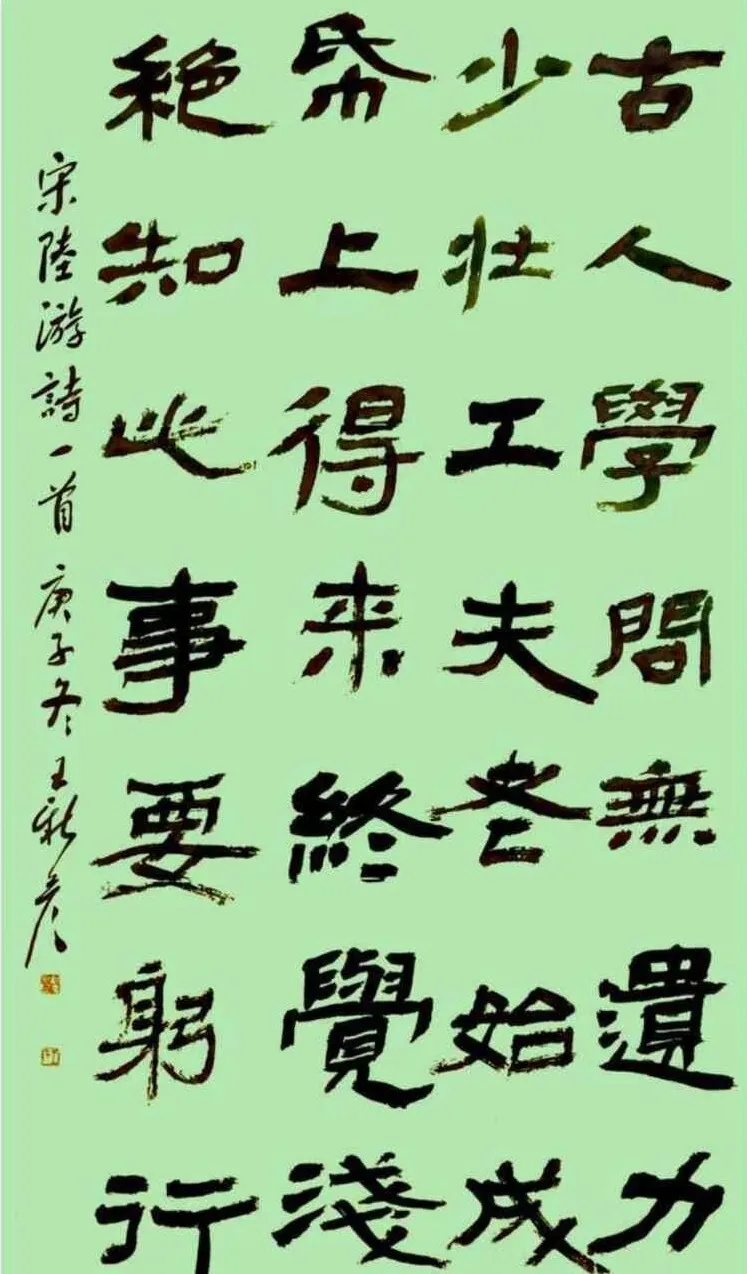 古人學問無遺力
少壮工夫老始成
帋上得来終覺淺
絶知此事要躬行
宋陸游詩一首 庚子冬 王